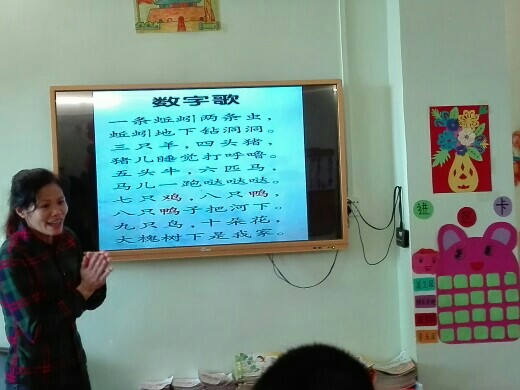 数字歌
一条蚯蚓两条虫，
蚯蚓地下钻洞洞。
三只羊，四头猪，
猪儿睡觉打呼噜。
五头牛，六匹马，
马儿一跑哒哒哒。
七只鸡，八只鸭，
八只鸭子把河下。
九只鸟，十朵花，
大槐树下是我家。